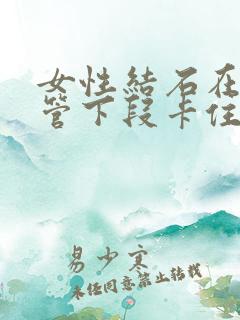 女性結石在
管下段卡住
易少寒
未经同意禁止转载